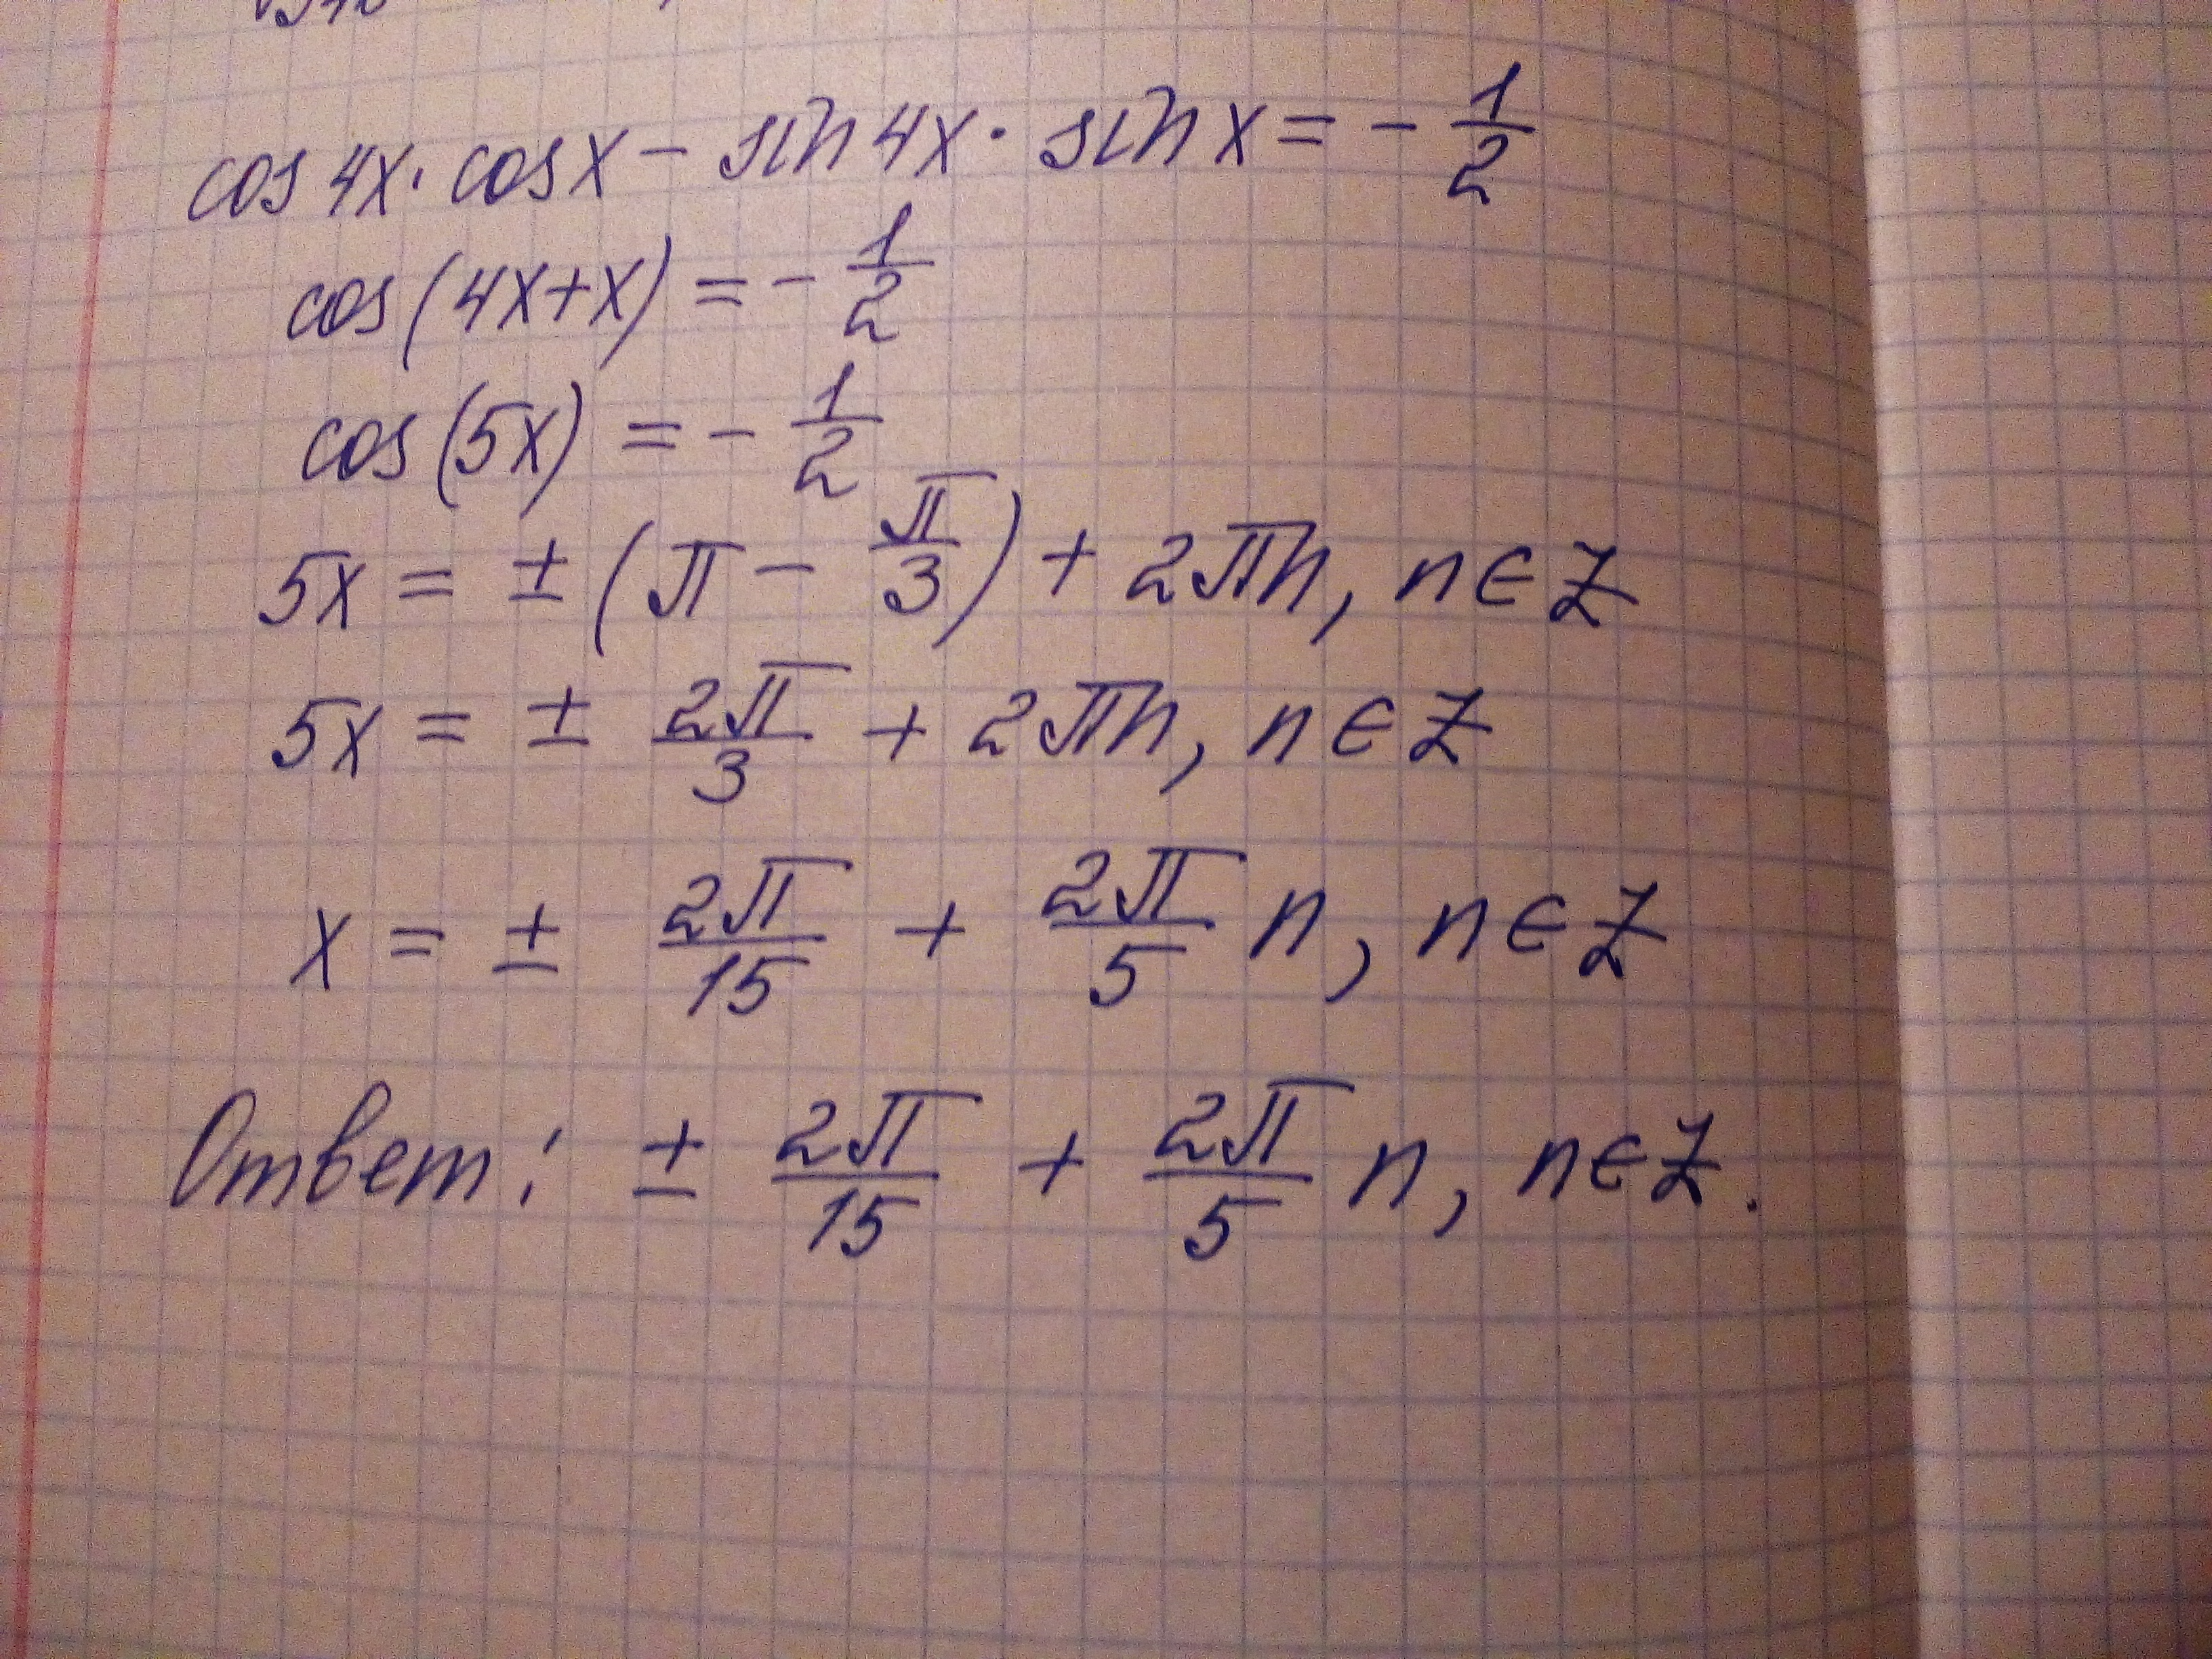 cos 4x · cos x − sin 4x · sin x = − 1/2
cos (4x + x) = − 1/2
cos (5x) = − 1/2
5x = ± (π − π/3) + 2πn, n ∈ Z
5x = ± 2π/3 + 2πn, n ∈ Z
x = ± 2π/15 + 2π/5 n, n ∈ Z
Ответ: ± 2π/15 + 2π/5 n, n ∈ Z.